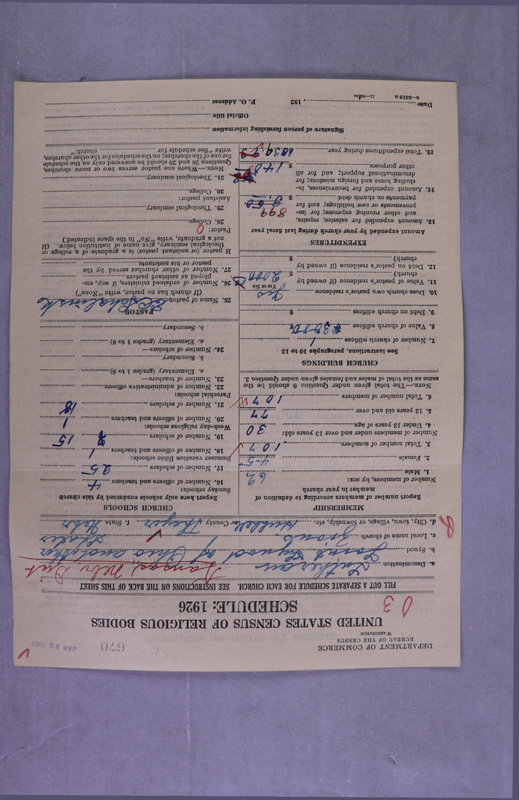 DEPARTMENT OF COMMERCE
BUREAU OF THE CENSUS
WASHINGTON
670
UNITED STATES CENSUS OF RELIGIOUS BODIES
SCHEDULE: 1926
03
FILL OUT A SEPARATE SCHEDULE FOR EACH CHURCH. SEE INSTRUCTIONS ON THE BACK OF THIS SHEET
a. Denomination Lutheran Kansas Nebr. Dist
b. Synod Joint Synod of Ohio and other States
c. Local name of church Zion's
d. City, town, village, or township, etc. Hubbell e. County Thayer f. State Nebr
MEMBERSHIP
Report number of members according to definition of
member in your church
Number of members, by sex:
1. Male 62
2. Female 45
3. Total number of members 107
Number of members under and over 13 years old:
4. Under 13 years of age 30
5. 13 years old and over 77
6. Total number of members 107
NOTE.—The total given under Question 6 should be the
same as the total of males and females given under Question 3.
CHURCH BUILDINGS
See Instructions, paragraphs 10 to 13
7. Number of church edifices 1
8. Value of church edifices $3500
9. Debt on church edifices $
10. Does church own pastor's residence Yes
Yes or No
11. Value of pastor's residence (if owned by
church) $ 2000
12. Debt on pastor's residence (if owned by
church) $
EXPENDITURES
Amount expended by your church during last fiscal year
13. Amount expended for salaries, repairs,
and other running expenses; for im-
provements or new building; and for
payments on church debt $ 899
14. Amount expended for benevolences, in-
cluding home and foreign missions; for
denominational support; and for all
other purposes $
15. Total expenditures during year
CHURCH SCHOOLS
Report here only schools conducted by this church
Sunday schools:
16. Number of officers and teachers 4
17. Number of scholars 25
Summer vacation Bible schools:
18. Number of officers and teachers
19. Number of scholars 15
Week-day religious schools:
20. Number of officers and teachers
21. Number of scholars 18
Parochial schools:
22. Number of administrative officers
23. Number of teachers—
a. Elementary (grades 1 to 8)
b. Secondary
24. Number of scholars—
a. Elementary (grades 1 to 8)
b. Secondary
PASTOR
25. Name of pastor
(If church has no pastor, write "None")
26. Number of ordained ministers, if any, em-
ployed as assistant pastors
27. Number of other churches served by the
pastor or his assistants
If pastor (or assistant pastor) is a graduate of a college or
theological seminary, give name of institution below. (If
not a graduate, write "No" in the space indicated.)
Pastor:
28. College
29. Theological seminary
Assistant pastor:
30. College
31. Theological seminary
NOTE.—Where one pastor serves two or more churches,
Questions 28 and 29 should be answered only on the schedule
for one of the churches; on the schedules for the other churches,
write "See schedule for church."
Signature of person furnishing information
Official title
Date , 192 P. O. Address